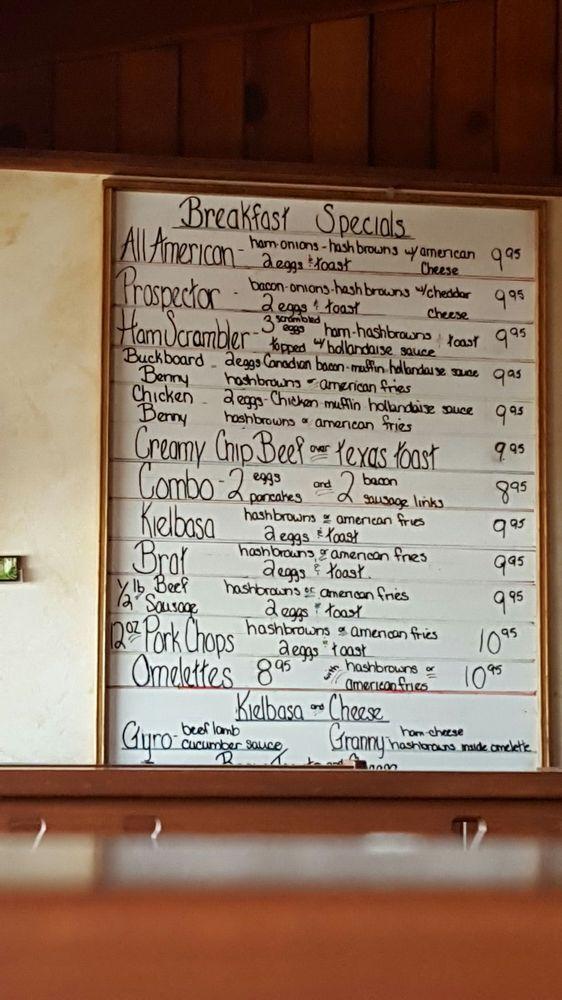 Breakfast Specials
All American - ham-onions-hashbrowns w/ american 9 95
2 eggs & toast Cheese
Prospector - bacon-onions-hashbrowns w/cheddar 9 95
2 eggs & toast cheese
Ham Scrambler - 3 scrambled eggs ham-hashbrowns & toast 9 95
topped w/ hollandaise sauce
Buckboard - 2 eggs Canadian bacon-muffin hollandaise sauce 9 95
Benny hashbrowns or american fries
Chicken - 2 eggs-Chicken muffin hollandaise sauce 9 95
Benny hashbrowns or american fries
Creamy Chip Beef over texas toast 9.95
Combo - 2 eggs pancakes and 2 bacon sausage links 8 95
Kielbasa hashbrowns or american fries 9 95
2 eggs & toast
Brat hashbrowns or american fries 9 95
2 eggs & toast.
1/2 lb Beef hashbrowns or american fries 9 95
Sausage 2 eggs & toast
12oz Pork Chops hashbrowns or american fries 10 95
2 eggs & toast
Omelettes 8 95 with hashbrowns or 10 95
american fries
Kielbasa and Cheese
Gyro - beef lamb Granny ham-cheese
cucumber sauce hashbrowns inside omelette